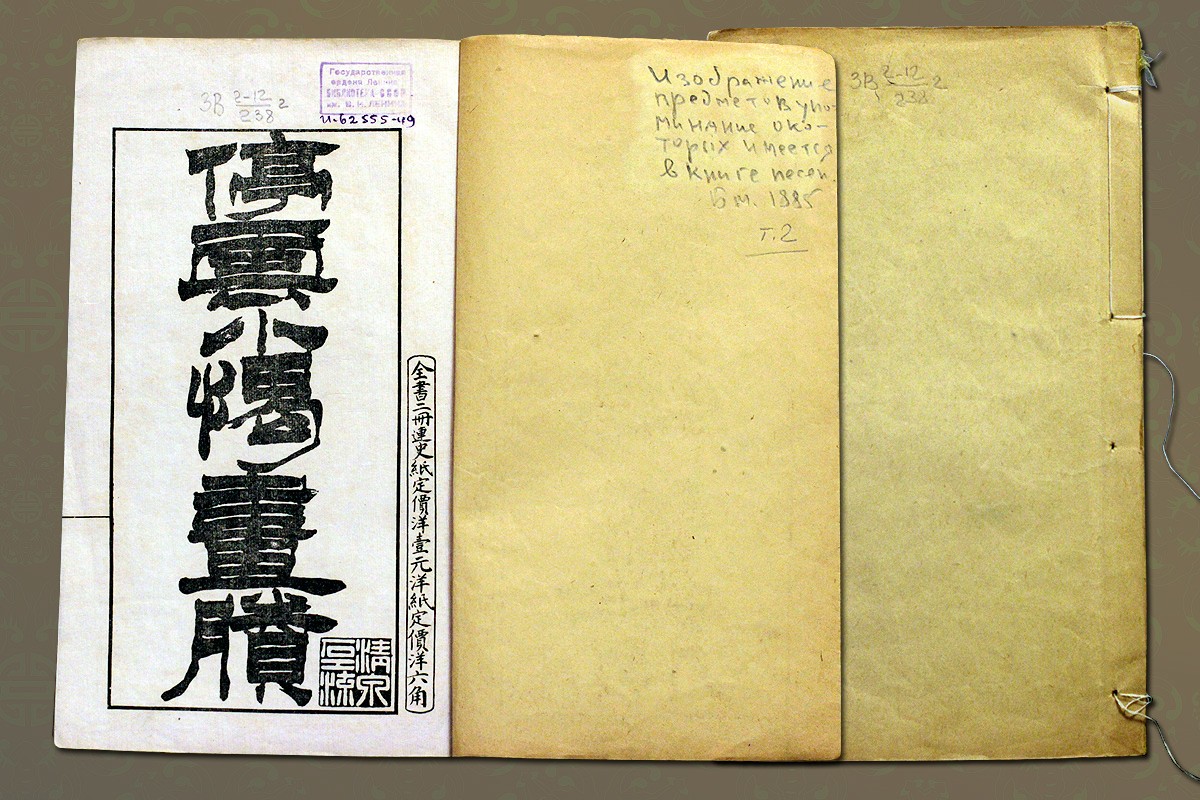 Государственная
ордена Ленина
БИБЛИОТЕКА СССР
им. В. И. ЛЕНИНА
И-62555-49
ЗВ 2-12 2
238
停雲小愒重
清泉
全書二冊連史紙定價洋壹元洋紙定價洋六角
Изображение
предметов упо-
минание о ко-
торых имеется
в книге песен.
Б м. 1885
т. 2
ЗВ 2-12 2
238